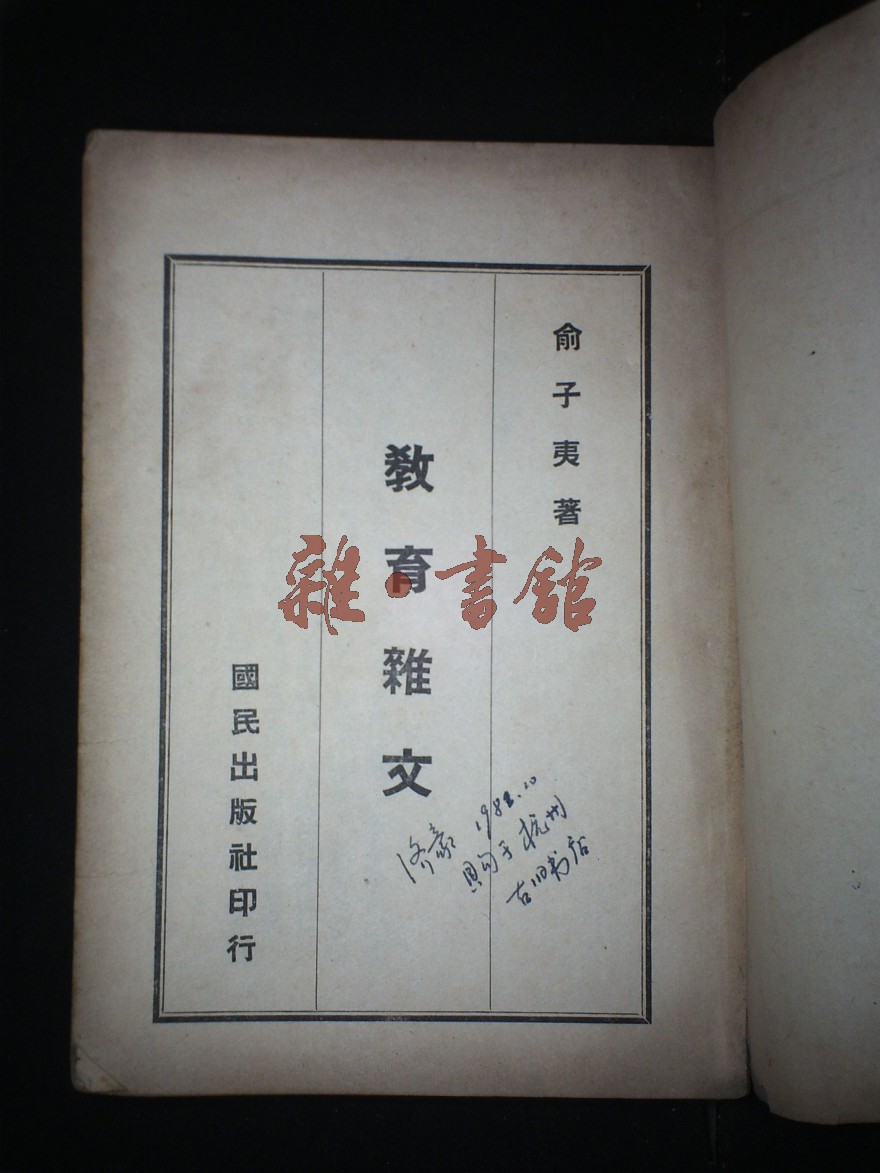 俞子夷著
教育雜文
國民出版社印行
雜·書館
济豪 1982.10
购于杭州
古旧书店